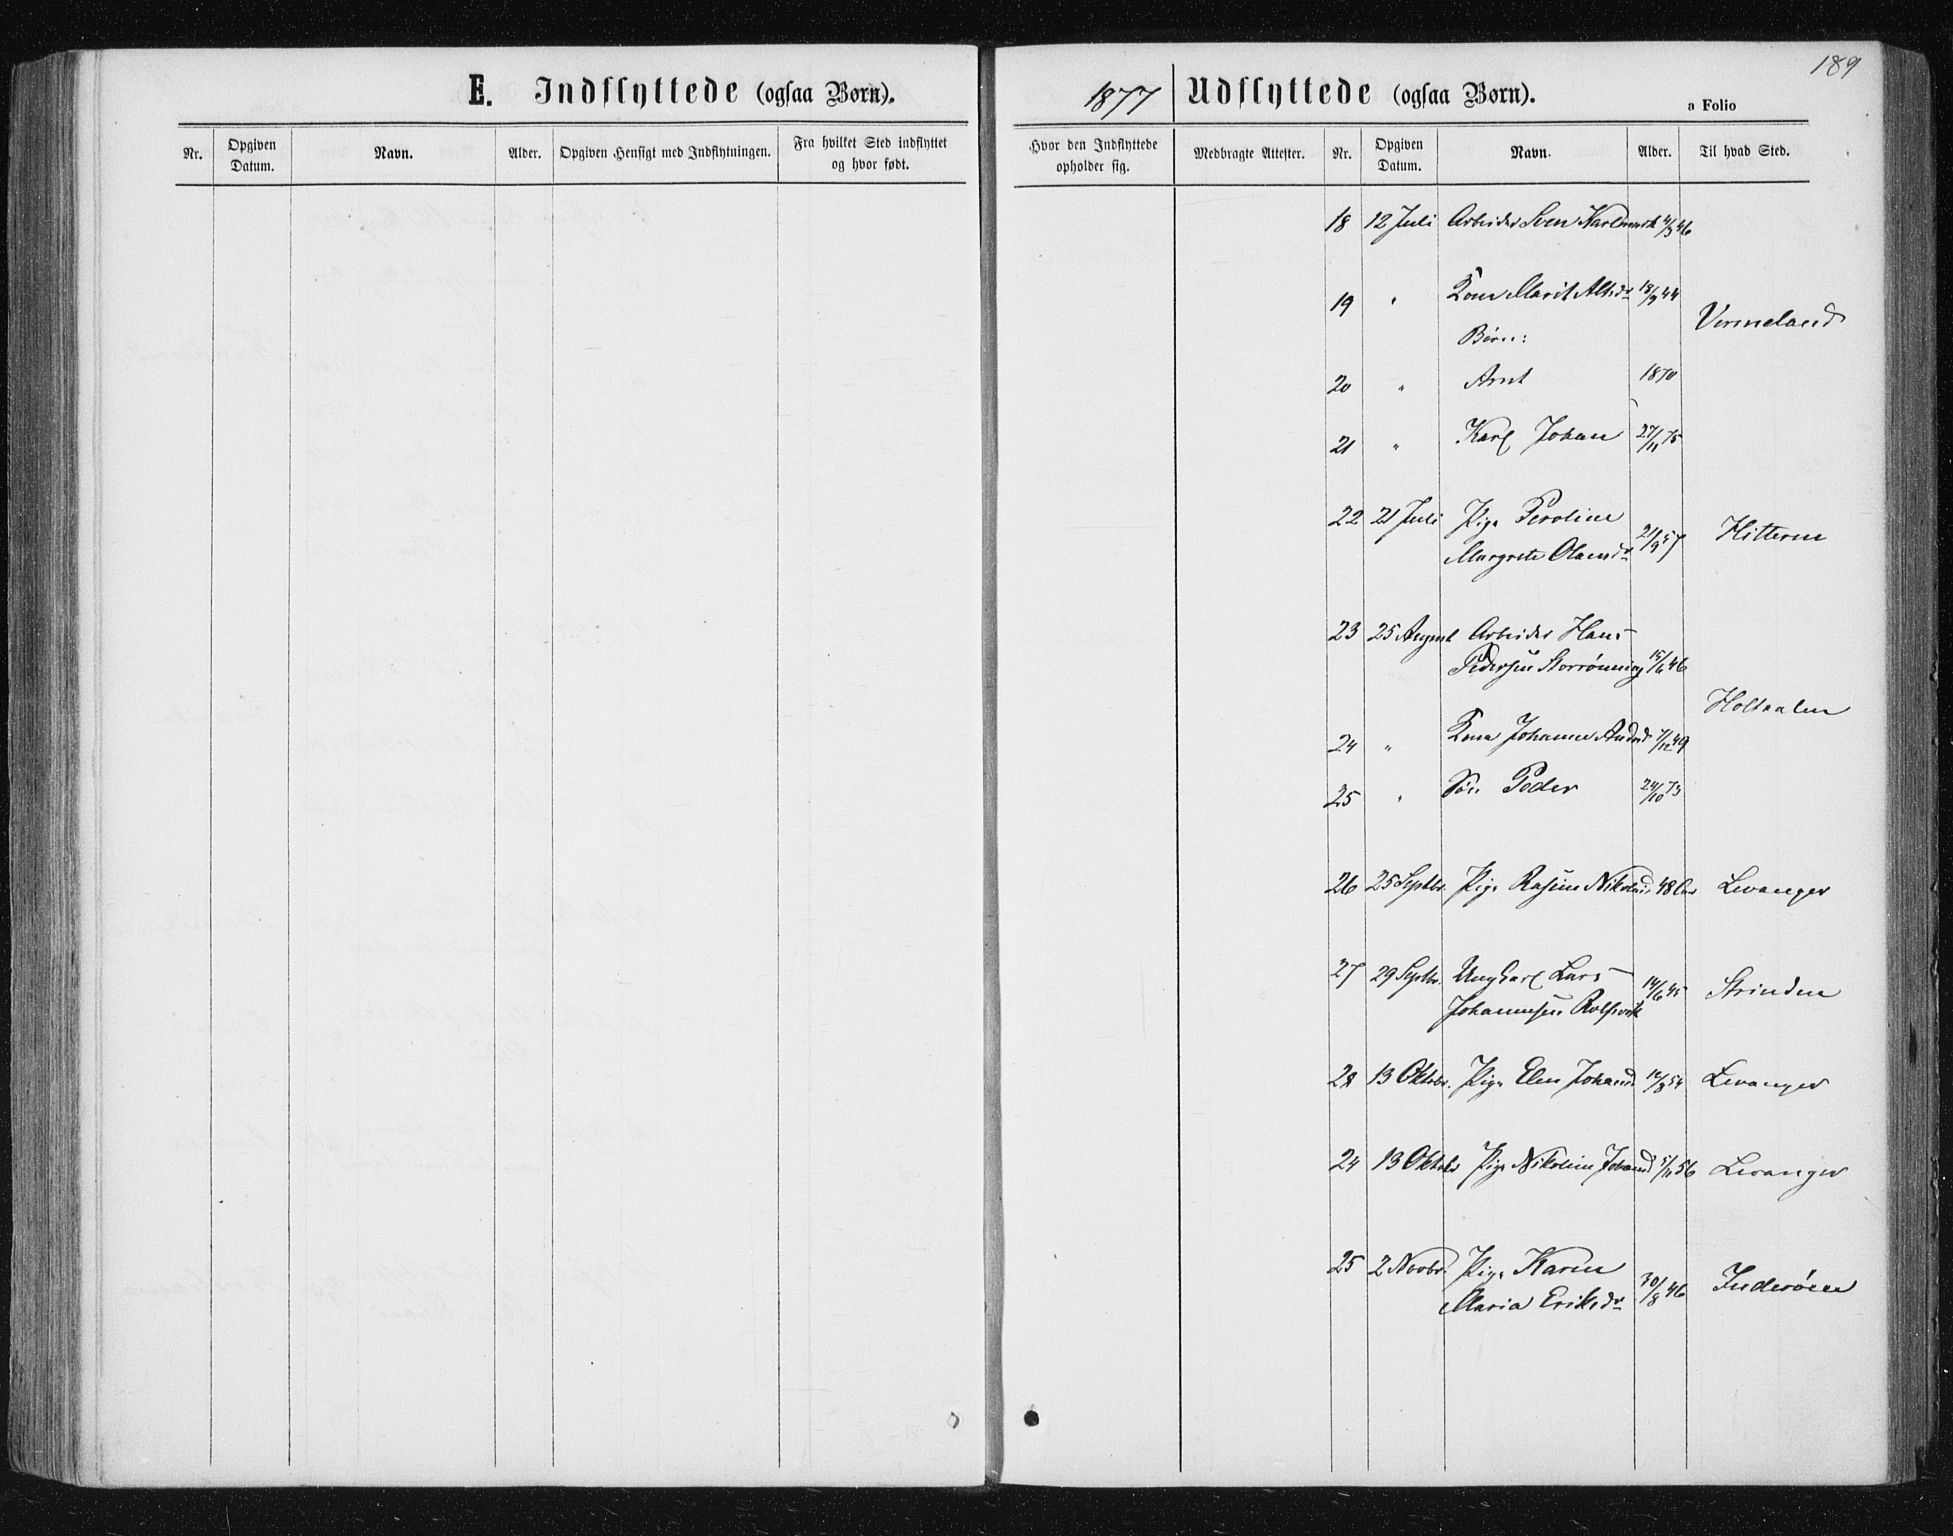 189
E. Indflyttede (ogsaa Børn).
1877 Udflyttede (ogsaa Børn). a Folio
Nr. Opgiven Datum. Navn. Alder. Opgiven Hensigt med Indflytningen. Fra hvilket Sted indflyttet og hvor født.
Hvor den Indflyttede opholder sig. Medbragte Attester. Nr. Opgiven Datum. Navn. Alder. Til hvad Sted.
18 12 Juli Arbeider Sven Karlmark 4/3 46
19 " Kone Marit Alksdr 18/9 44
Vermeland
Børn:
20 " Arnt 1870
21 " Karl Johan 27/11 75
22 21 Juli Pige Peroline
Margrete Olausdr 21/9 57 Hitteren
23 25 August Arbeider Hans
Pedersen Storrønning 15/6 46
Holtaalen
24 " Kone Johanne Andsd 7/12 49
25 " Søn Peder 24/10 73
26 25 Septbr. Pige Rasine Nikolais 48 Aar Levanger
27 29 Septbr. Ungkarl Lars
Johannesen Rolfsvik 14/6 45 Strinden
28 13 Oktobr. Pige Elen Johansd 12/8 54 Levanger
24 13 Oktobr Pige Nikoline Johansd 5/11 56 Levanger
25 2 Novbr. Pige Karen
Maria Eriksdr 30/8 46 Inderøen